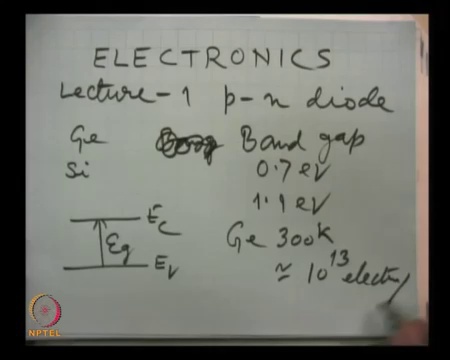 ELECTRONICS
Lecture-1 p-n diode
Ge Band gap
Si 0.7 eV
1.1 eV
Ec
Eg Ge 300K
Ev ≃ 10^13 electr
NPTEL